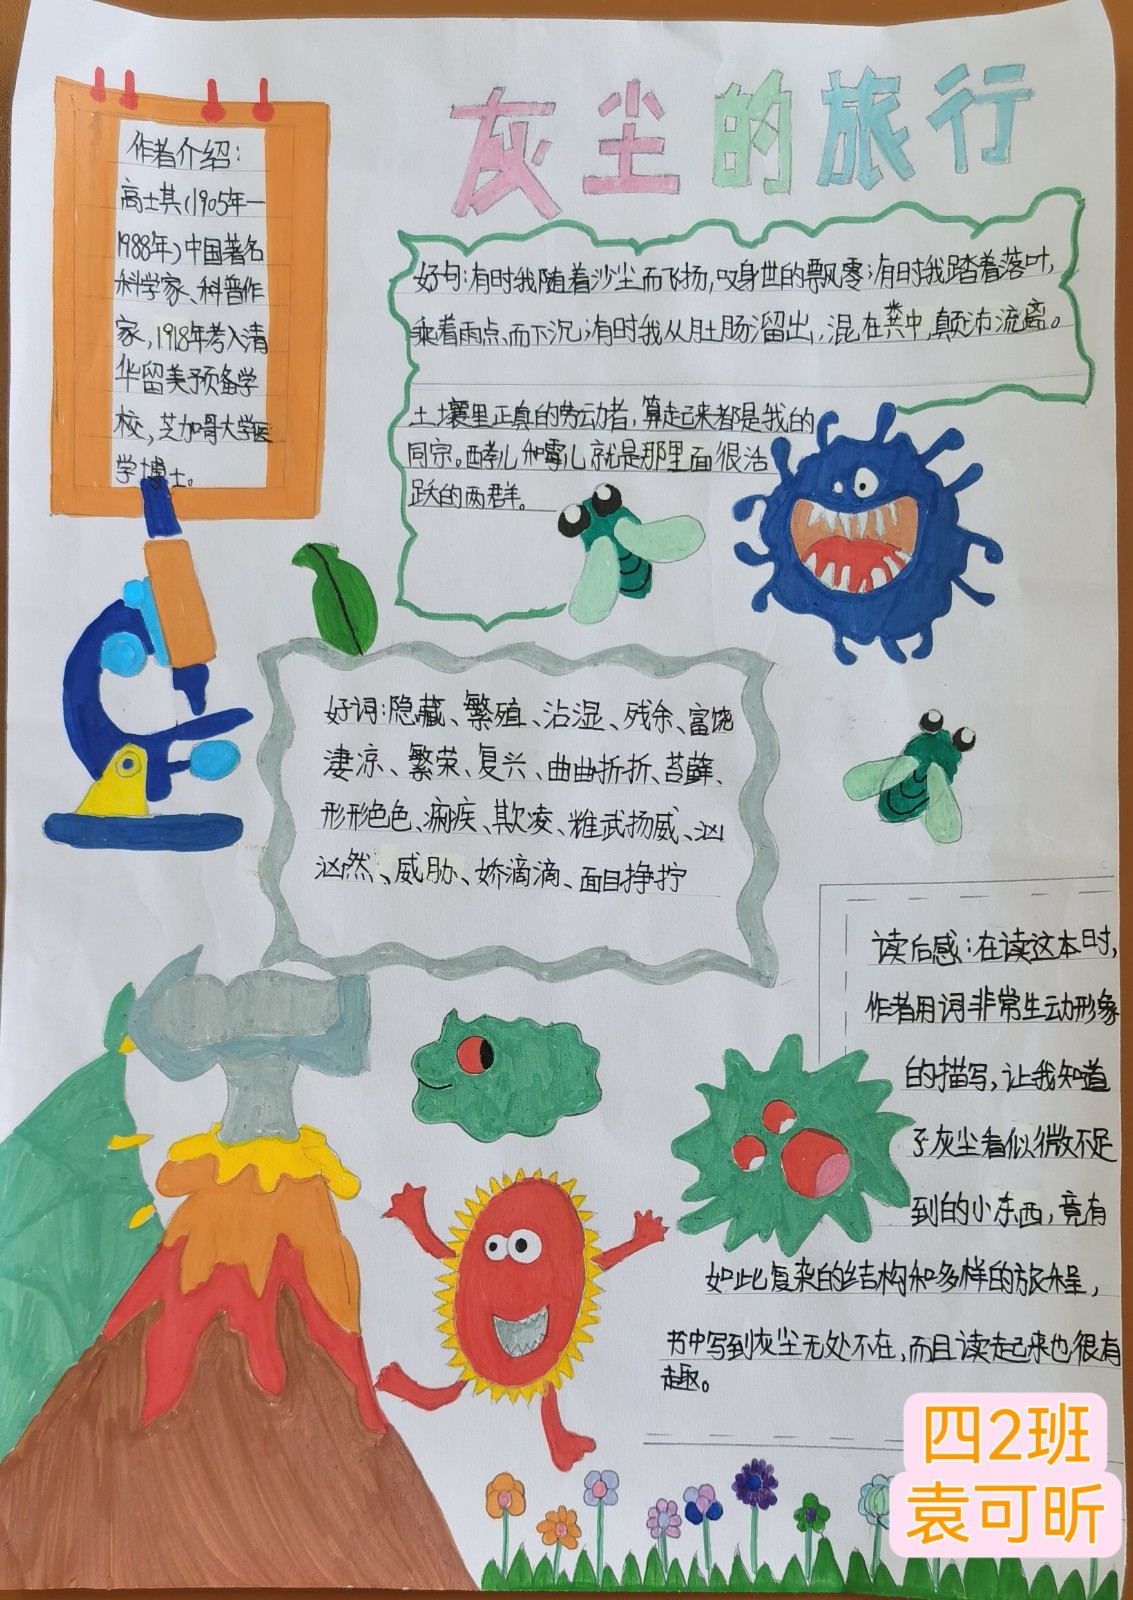 灰尘的旅行
作者介绍：
高士其（1905年一
1988年）中国著名
科学家、科普作
家，1918年考入清
华留美预备学
校，芝加哥大学医
学博士。
好句：有时我随着沙尘而飞扬，叹身世的飘零；有时我踏着落叶，
乘着雨点、而下沉；有时我从肚肠溜出，混在粪中，颠沛流离。
土壤里正真的劳动者，算起来都是我的
同宗。酵儿和霉儿就是那里面很活
跃的两群。
好词：隐藏、繁殖、沾湿、残余、富饶
凄凉、繁荣、复兴、曲曲折折、苔藓、
形形色色、痢疾、欺凌、耀武扬威、汹
汹然、威胁、娇滴滴、面目狰狞
读后感：在读这本时，
作者用词非常生动形象
的描写，让我知道
了灰尘看似微不足
到的小东西，竟有
如此复杂的结构和多样的旅程，
书中写到灰尘无处不在，而且读起来也很有
趣。
四2班
袁可昕